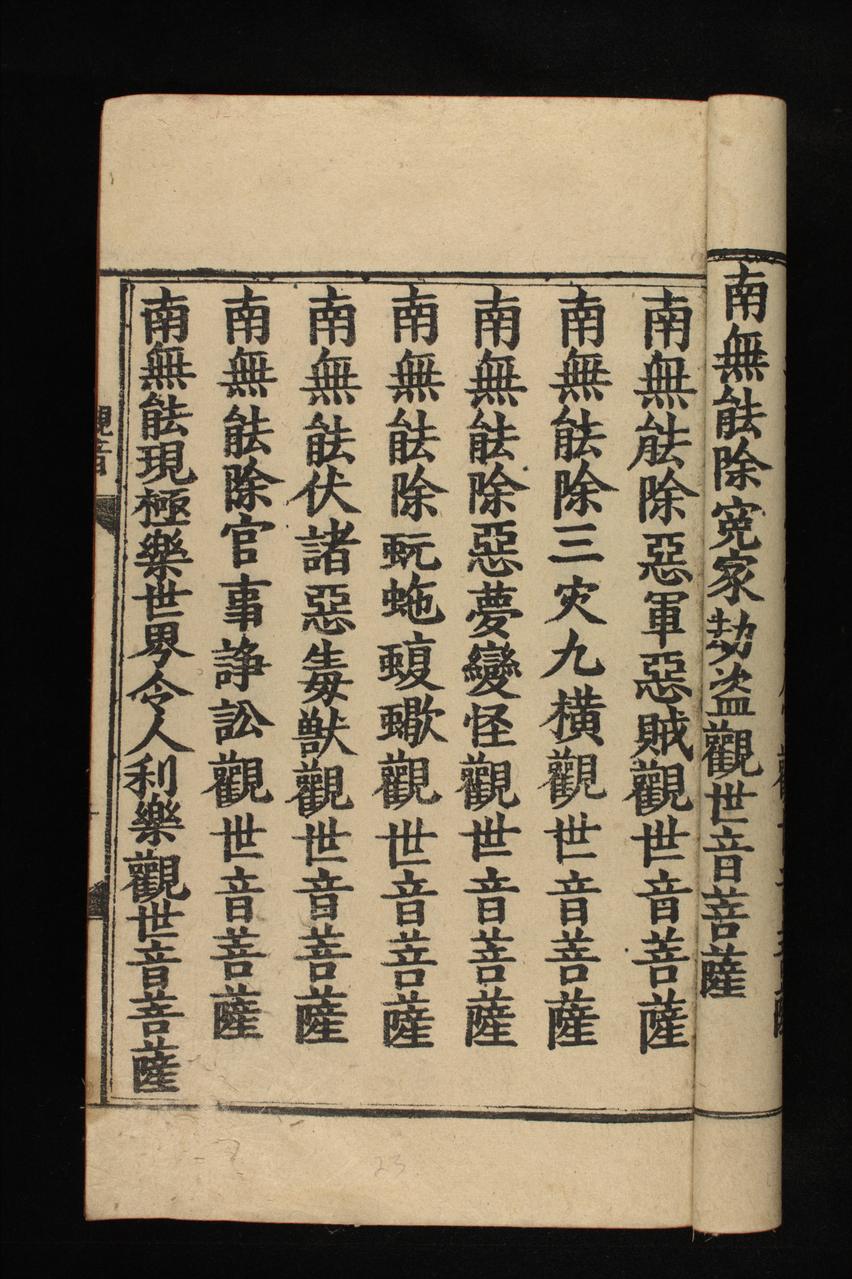 南無能除寃家劫盗觀世音菩薩
南無能除惡軍惡賊觀世音菩薩
南無能除三灾九橫觀世音菩薩
南無能除惡夢變怪觀世音菩薩
南無能除蚖虵蝮蠍觀世音菩薩
南無能伏諸惡毒獸觀世音菩薩
南無能除官事諍訟觀世音菩薩
南無能現極樂世界令人利樂觀世音菩薩
觀音
23